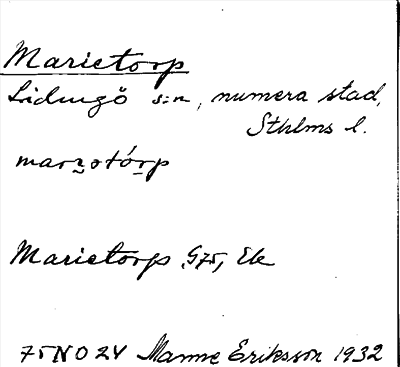 Marietorp
Lidingö s:n, numera stad,
Sthlms l.
marɜotórp
Marietorp G75, Ek
75 NO 24 Manne Eriksson 1932